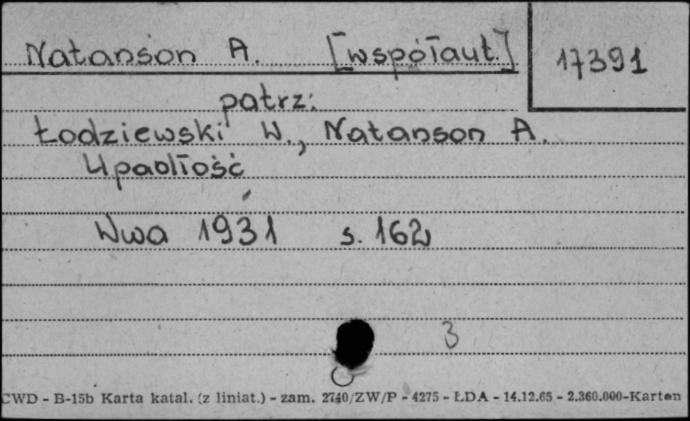 Natanson A. [współaut.]
17391
patrz:
Łodziewski W., Natanson A.
Upadłość
Wwa 1931 s. 162
3
CWD - B-15b Karta katal. (z liniat.) - zam. 2740/ZW/P - 4275 - ŁDA - 14.12.65 - 2.360.000-Karton